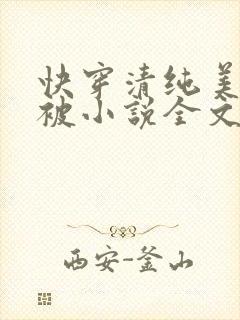 快穿清纯美
被小说全文
西安-釜山